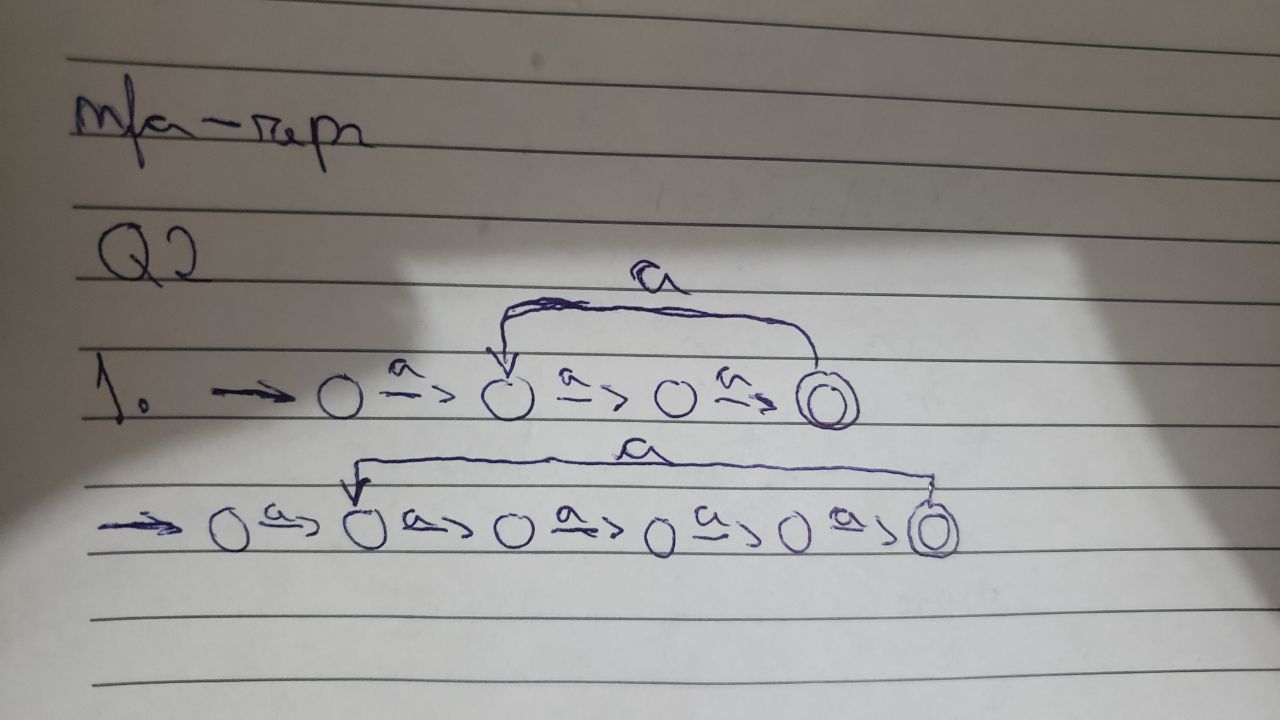 nfa-repr
Q2
a
1. a a a
a
a a a a a